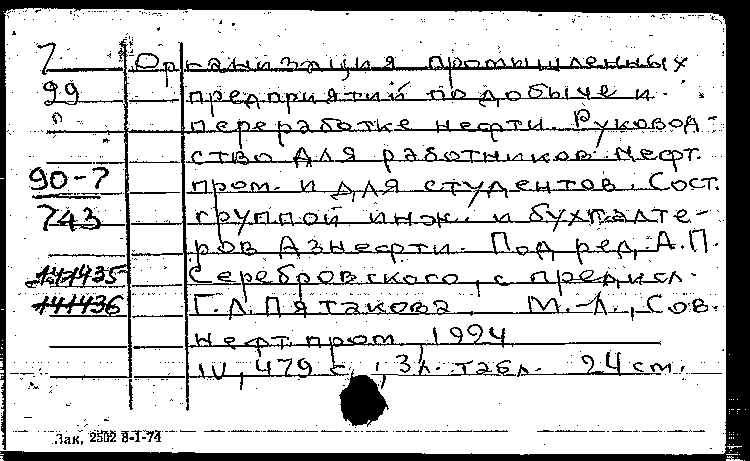 7 Организация промышленных
99 предприятий по добыче и
п переработке нефти. Руковод-
ство для работников нефт.
90-7 пром. и для студентов. Сост.
743 группой инж. и бухгалте-
ров Азнефти. Под ред. А.П.
141435 Серебровского, с предисл.
141436 Г.Л. Пятакова. М.-Л., Сов.
нефт. пром., 1924
IV, 479 с., 3 л. табл. 24 cm.
Зак. 2502 8-1-74